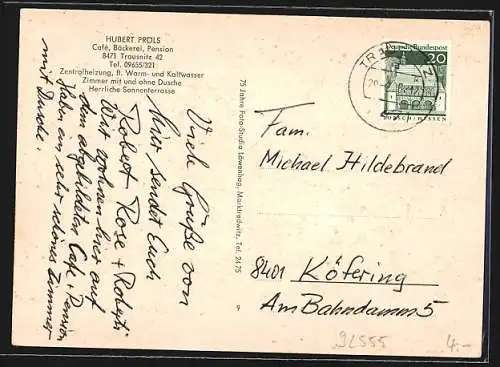 HUBERT PRÖLS
Café, Bäckerei, Pension
8471 Trausnitz 42
Tel. 09655/221
Zentralheizung, fl. Warm- und Kaltwasser
Zimmer mit und ohne Dusche
Herrliche Sonnenterrasse
Viele Grüße von
hier sendet Euch
Robert Rose + Roberti
Wir wohnen hier auf
dem abgebildeten Café + Pension
haben ein sehr schönes Zimmer
mit Dusche.
75 Jahre Foto-Studio Löwenhag, Marktredwitz, Tel. 2475
9
TRAUSNITZ
Deutsche Bundespost
20
LORSCH/HESSEN
Fam.
Michael Hildebrand
8401 Köfering
Am Bahndamm 5
92555
4.-